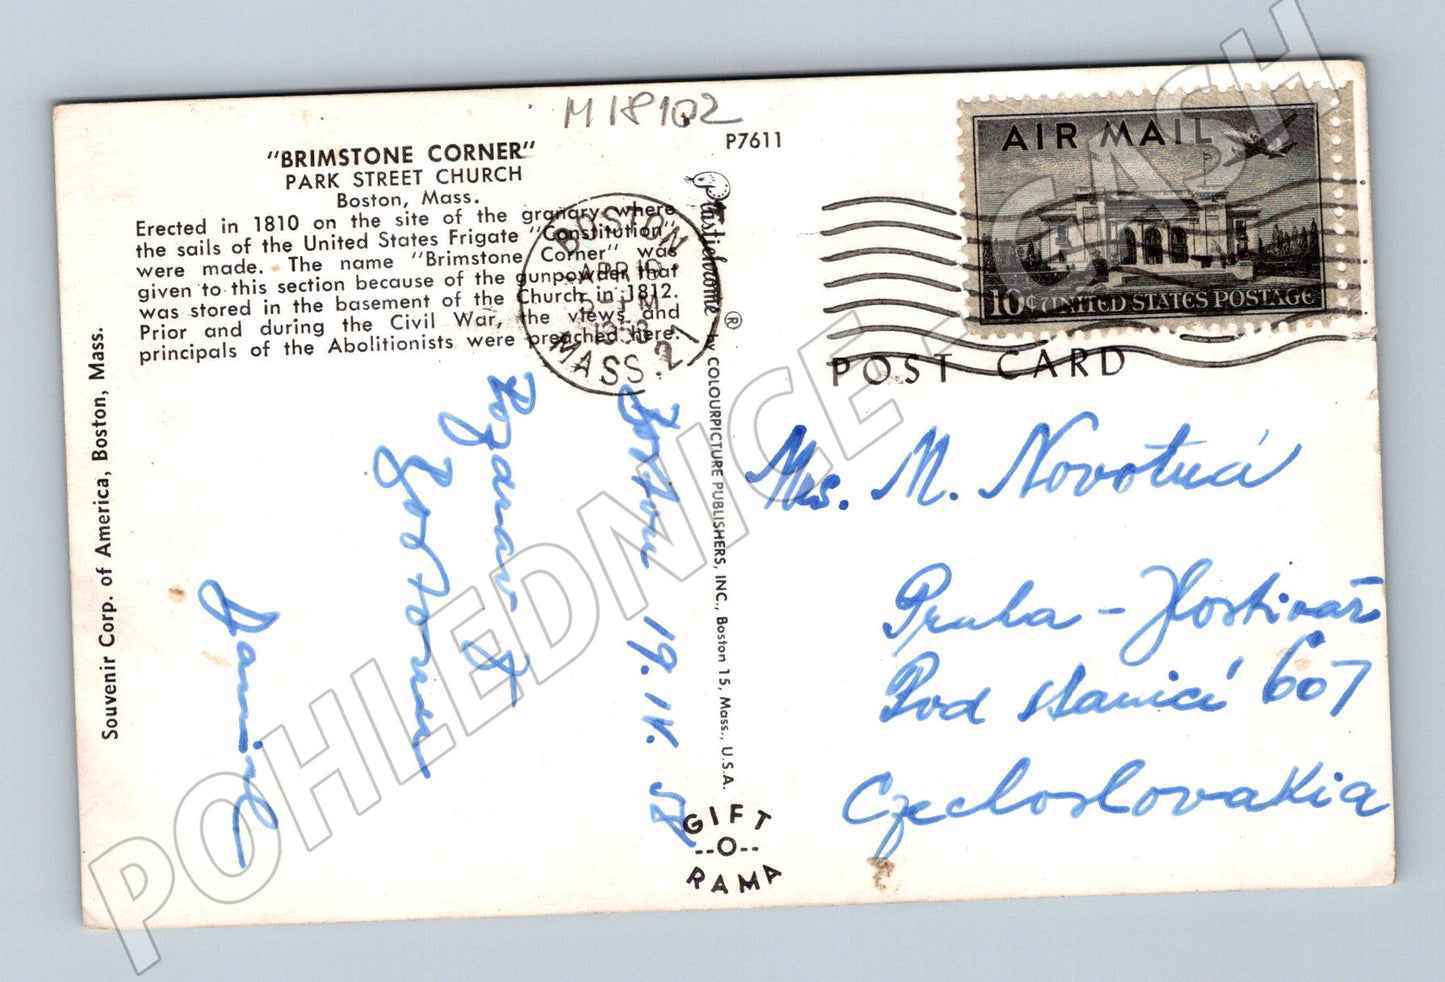 M 18102
P7611
"BRIMSTONE CORNER"
PARK STREET CHURCH
Boston, Mass.
Erected in 1810 on the site of the granary where
the sails of the United States Frigate "Constitution"
were made. The name "Brimstone Corner" was
given to this section because of the gunpowder that
was stored in the basement of the Church in 1812.
Prior and during the Civil War, the views and
principals of the Abolitionists were preached here.
Souvenir Corp. of America, Boston, Mass.
BOSTON
APR 19
PM
1958
MASS. 21
Plastichrome ® by COLOURPICTURE PUBLISHERS, INC., Boston 15, Mass., U.S.A.
AIR MAIL
10¢ UNITED STATES POSTAGE
POST CARD
Boston 19. IV. 58
Pozdrav z
Bostonu
Jaromír
Mrs. M. Novotná
Praha - Hostivař
Pod stanicí 607
Czechoslovakia
GIFT
--O--
RAMA
POHLEDNICE - CASH